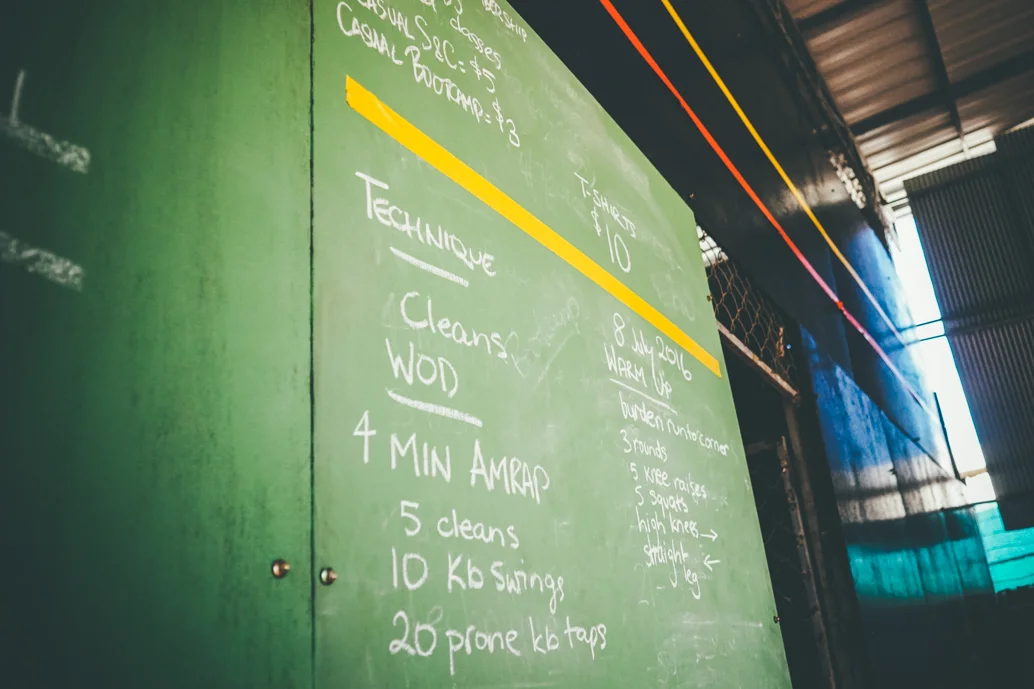 classes
CASUAL S&C = $5
CASUAL BOOTCAMP = $3
T-SHIRTS
$10
TECHNIQUE
Cleans
WOD
4 MIN AMRAP
5 cleans
10 Kb Swings
20 prone kb taps
8 July 2016
WARM UP
burden run to corner
3 rounds
5 knee raises
5 squats
high knees →
straight ←
leg